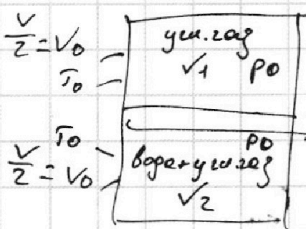 V/2 = V₀
T₀
угл.газ
√1 P0
T₀
V/2 = V₀
P0
вода+угл.газ
√2